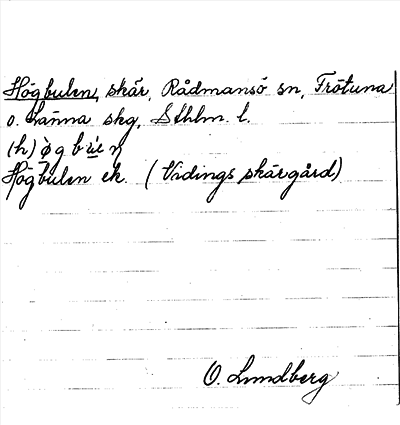 Högbulen, skär, Rådmansö sn, Frötuna
o. Länna skg, Sthlm. l.
Högbulen ek. (Vidings skärgård)
O. Lundberg